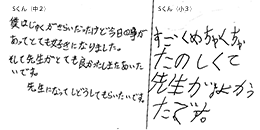 Sくん（中2）
僕はじゅくがきらいだったけど今日の事が
あってとても好きになりました。
そして先生がとても良かったしまたあいた
いです。
先生になってしどうしてもらいたいです。
Sくん（小3）
すごくめちゃくちゃ
たのしくて
先生がよかっ
たです。